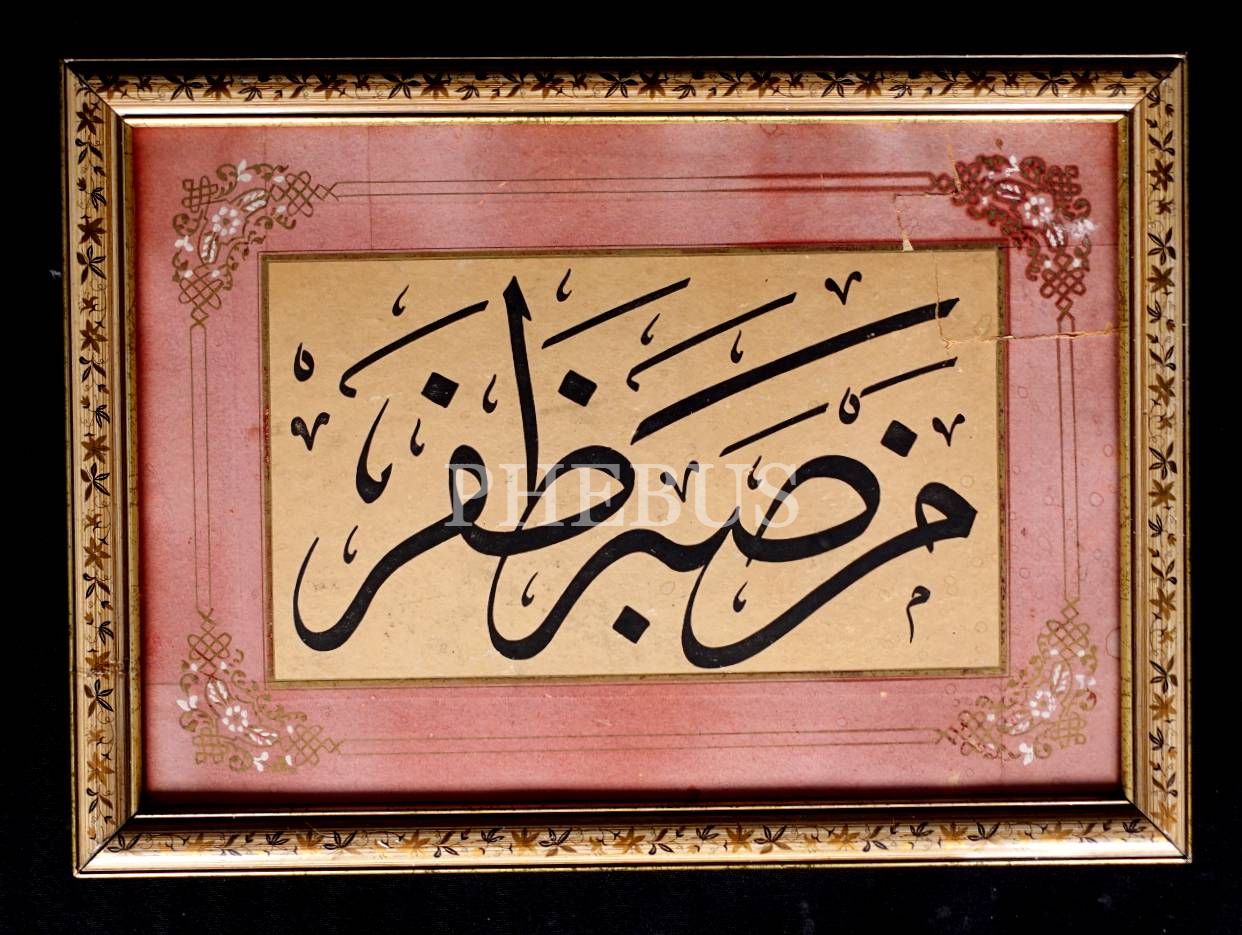 من صبر ظفر
PHEBUS